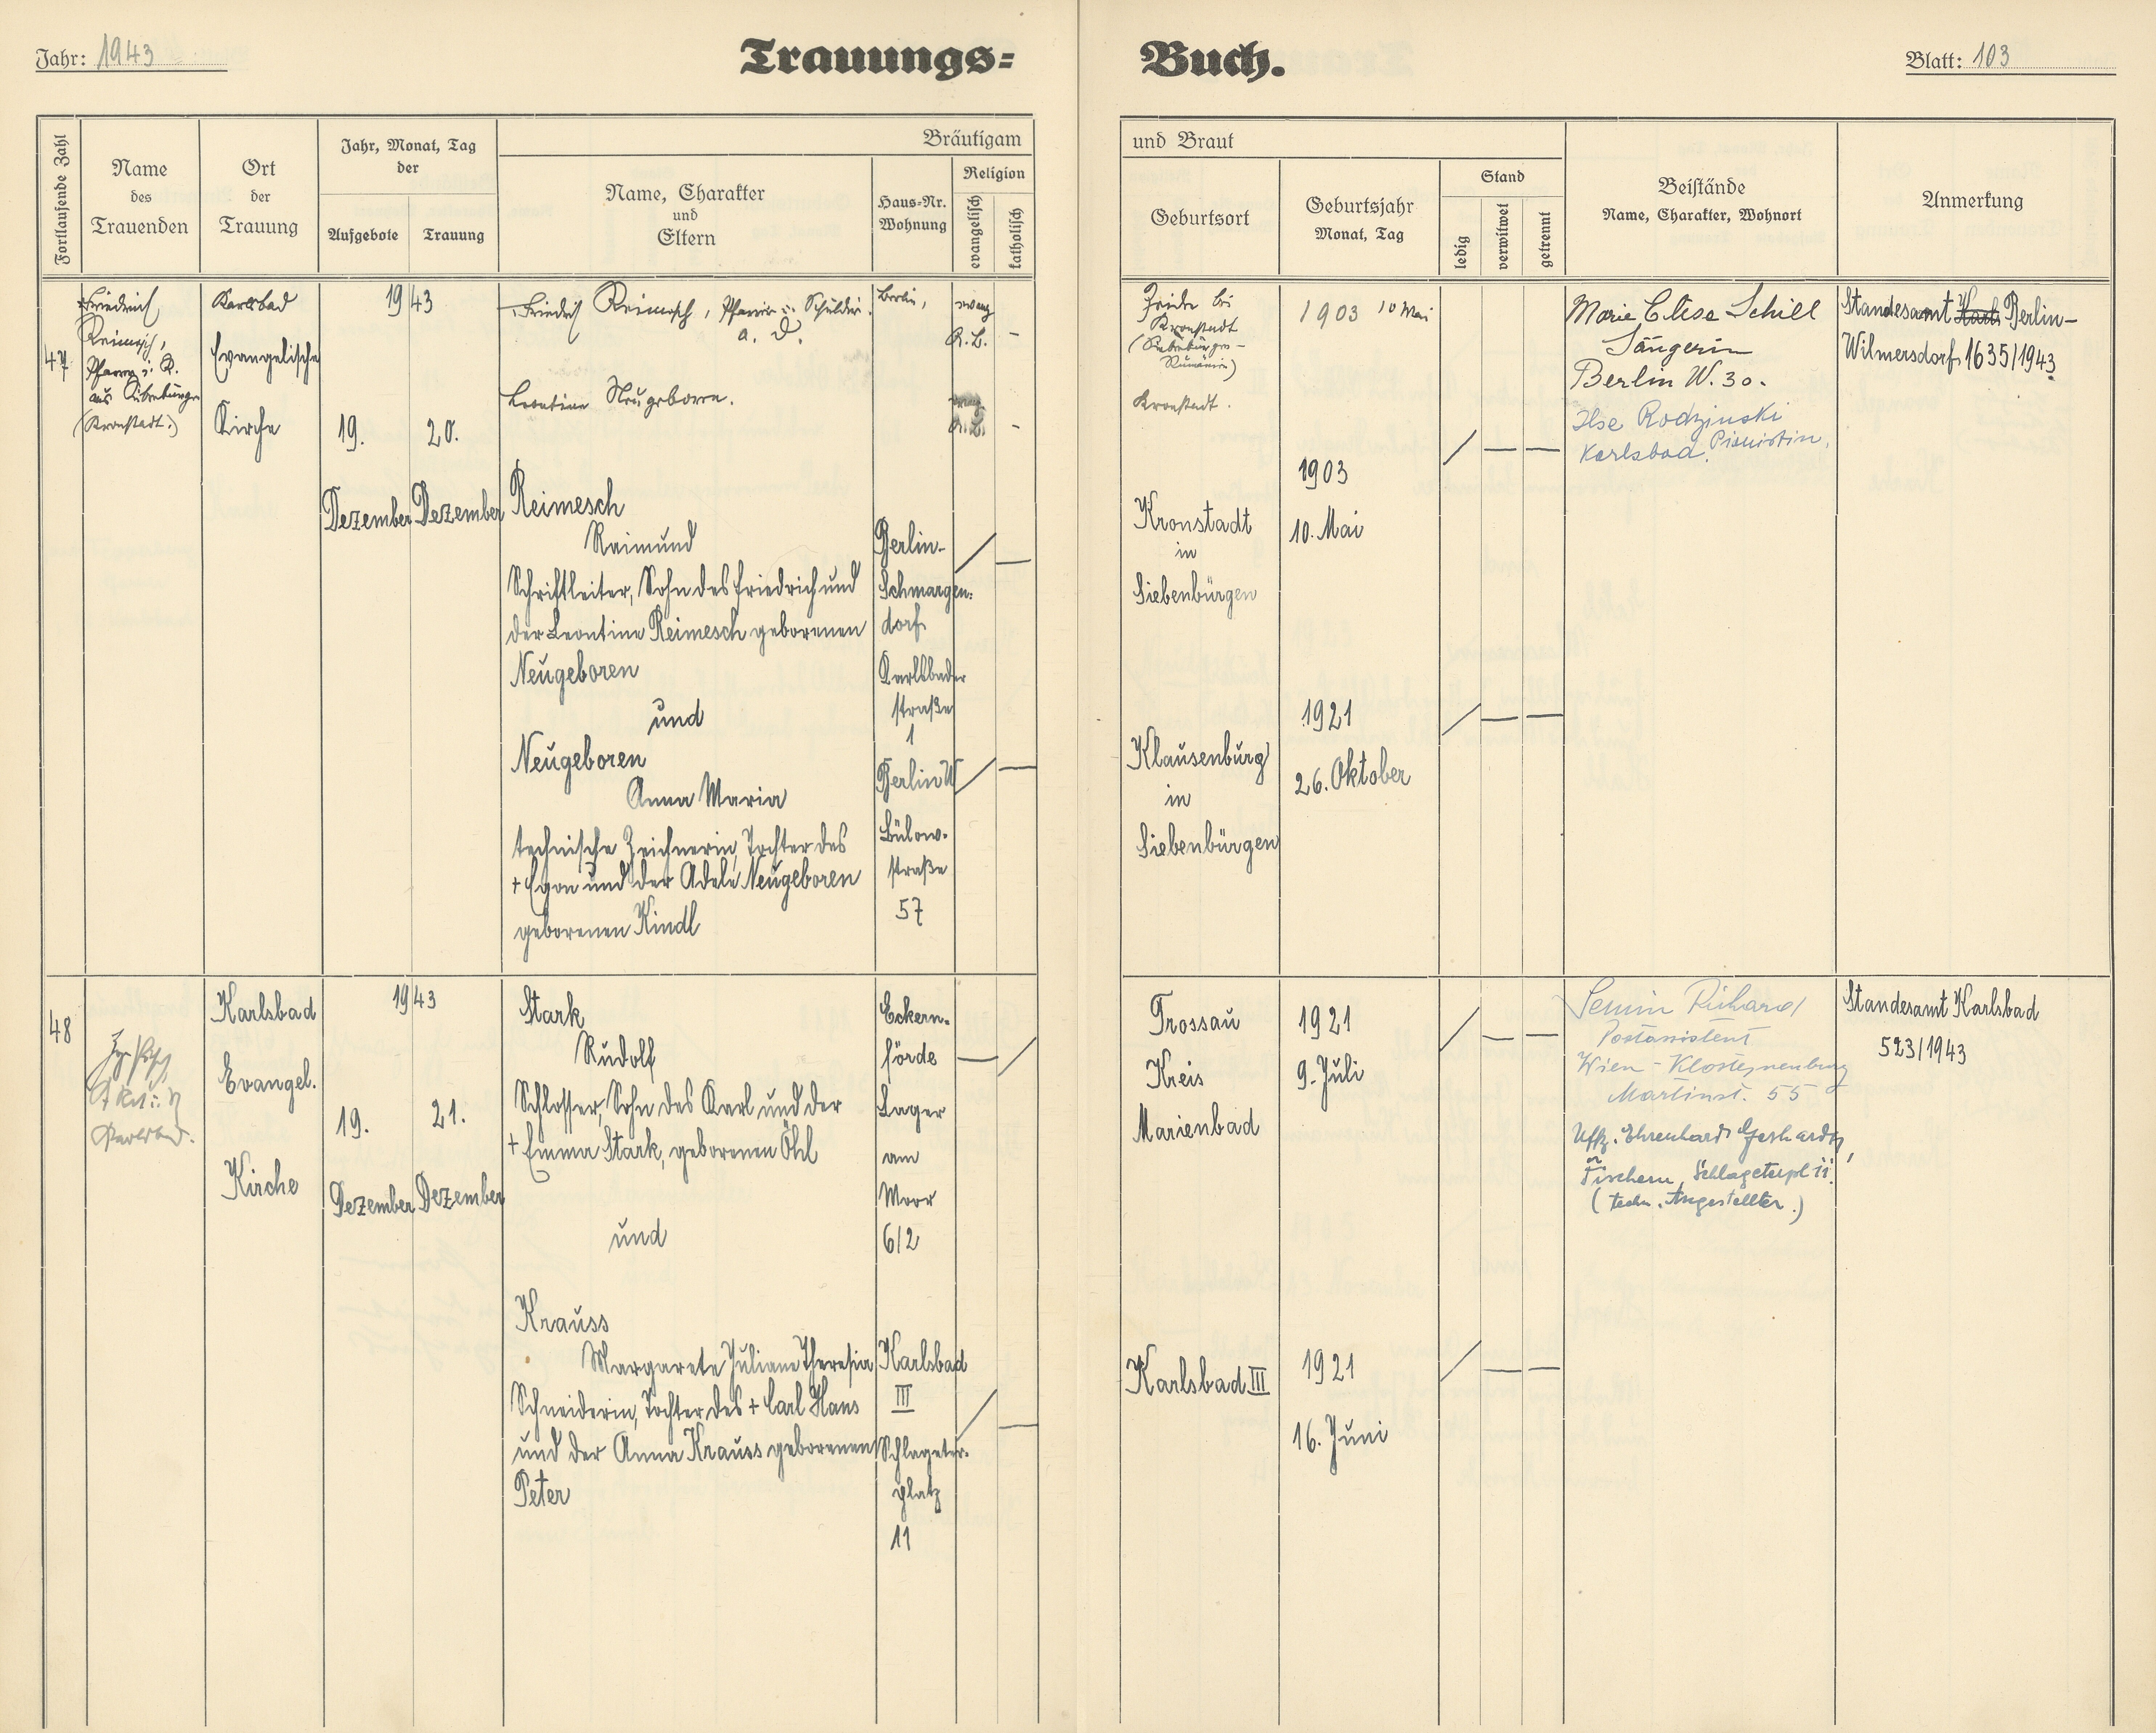 Jahr: 1943
Trauungs=
Buch.
Blatt: 103
Fortlaufende Zahl
Name
des
Trauenden
Ort
der
Trauung
Jahr, Monat, Tag
der
Aufgebote
Trauung
Bräutigam
Name, Charakter
und
Eltern
Haus=Nr.
Wohnung
Religion
evangelisch
katholisch
und Braut
Geburtsort
Geburtsjahr
Monat, Tag
Stand
ledig
verwitwet
getrennt
Beistände
Name, Charakter, Wohnort
Anmerkung
47
Friedrich
Reimesch,
Pfarrer i. R.
aus Siebenbürgen
(Kronstadt.)
Karlsbad
Evangelische
Kirche
1943
19.
20.
Dezember
Dezember
Friedrich Reimesch, Pfarrer u.
a. D.
Leontine Neugeboren.
Reimesch
Raimund
Schriftleiter, Sohn des Friedrich und
der Leontine Reimesch geborenen
Neugeboren
und
Neugeboren
Anna Maria
technische Zeichnerin, Tochter des
+ Egon und der Adele Neugeboren
geborenen Kindl
Berlin,
evang.
A. B.
–
A. B.
–
Berlin-
Schmargen-
dorf
Karlsbader
straße
1
Berlin W
Bülow-
straße
57
Zeiden bei
Kronstadt
(Siebenbürgen –
Rumänien)
Kronstadt.
Kronstadt
in
Siebenbürgen
Klausenburg
in
Siebenbürgen
1903 10 Mai
1903
10. Mai
1921
26. Oktober
Marie Elise Schill
Sängerin
Berlin W. 30.
Ilse Rodzinski
Karlsbad, Pianistin.
Standesamt Karls Berlin-
Wilmersdorf 1635/1943
48
Karlsbad
Evangel.
Kirche
1943
19.
21.
Dezember
Dezember
Stark
Rudolf
Schlosser, Sohn des Karl und der
+ Emma Stark, geborenen Öhl
und
Krauss
Margarete Juliane Theresia
Schneiderin, Tochter des + Carl Hans
und der Anna Krauss geborenen
Peter
Eckern-
förde
Lager
am
Moor
6/2
Karlsbad
III
Schlageter-
platz
11
Trossau
Kreis
Marienbad
Karlsbad III
1921
9. Juli
1921
16. Juni
Richard
Postassistent
Wien - Klosterneuburg
Martinst. 55
Uffz. Ehrenhard Gerhardt,
Fischern, Schlageterpl 11.
(techn. Angestellter.)
Standesamt Karlsbad
523/1943